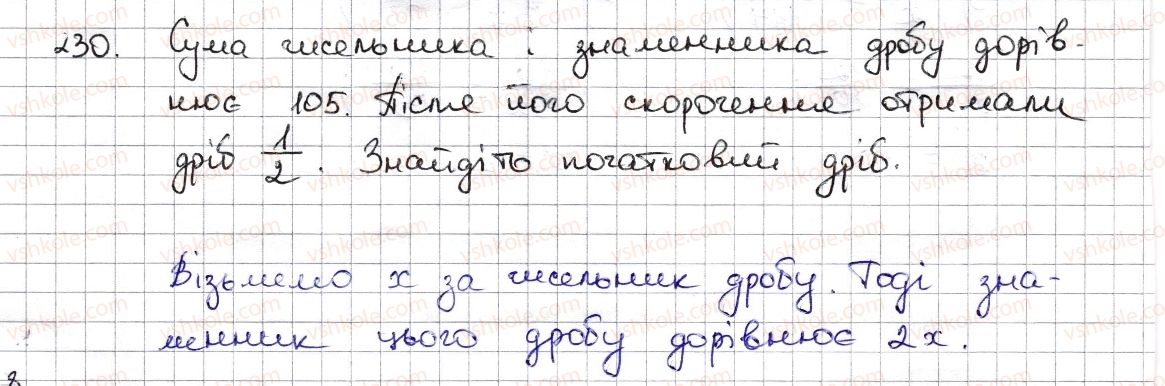 230. Сума чисельника і знаменника дробу дорів-
нює 105. Після його скорочення отримали
дріб 1/2. Знайдіть початковий дріб.
Візьмемо x за чисельник дробу. Тоді зна-
менник цього дробу дорівнює 2x.